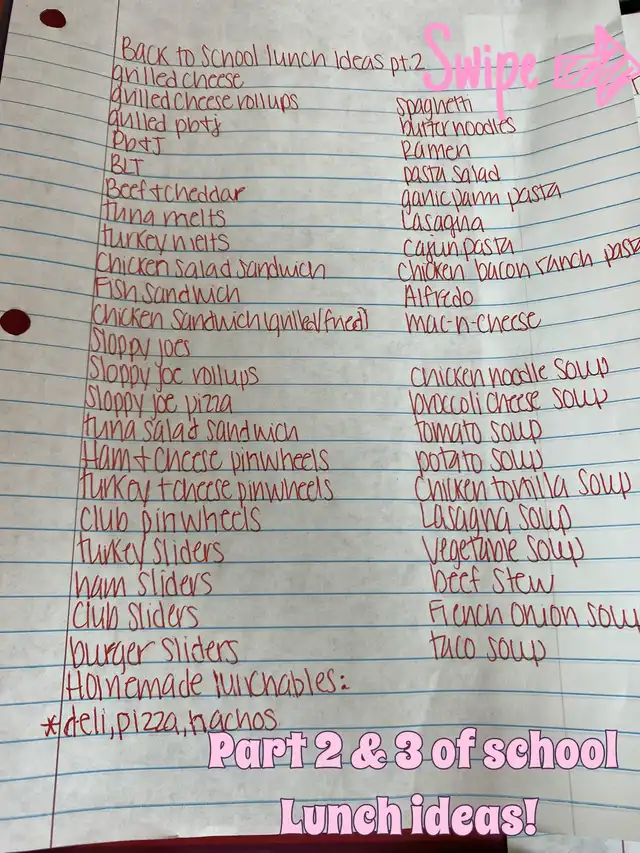 Swipe
Back to School lunch Ideas pt.2
grilled cheese
grilled cheese rollups
grilled pb+j
Pb+J
BLT
Beef + cheddar
tuna melts
turkey melts
chicken salad sandwich
Fish sandwich
chicken sandwich (grilled/fried)
Sloppy joes
Sloppy joe rollups
Sloppy joe pizza
tuna salad sandwich
Ham + cheese pinwheels
turkey + cheese pinwheels
club pinwheels
turkey sliders
ham sliders
club sliders
burger sliders
Homemade lunchables:
*deli, pizza, nachos
spaghetti
butter noodles
Ramen
pasta salad
garlic parm pasta
Lasagna
cajun pasta
chicken bacon ranch pasta
Alfredo
mac-n-cheese
chicken noodle soup
broccoli cheese soup
tomato soup
potato soup
Chicken tortilla soup
Lasagna soup
vegetable soup
beef stew
French onion soup
taco soup
Part 2 & 3 of school
Lunch ideas!